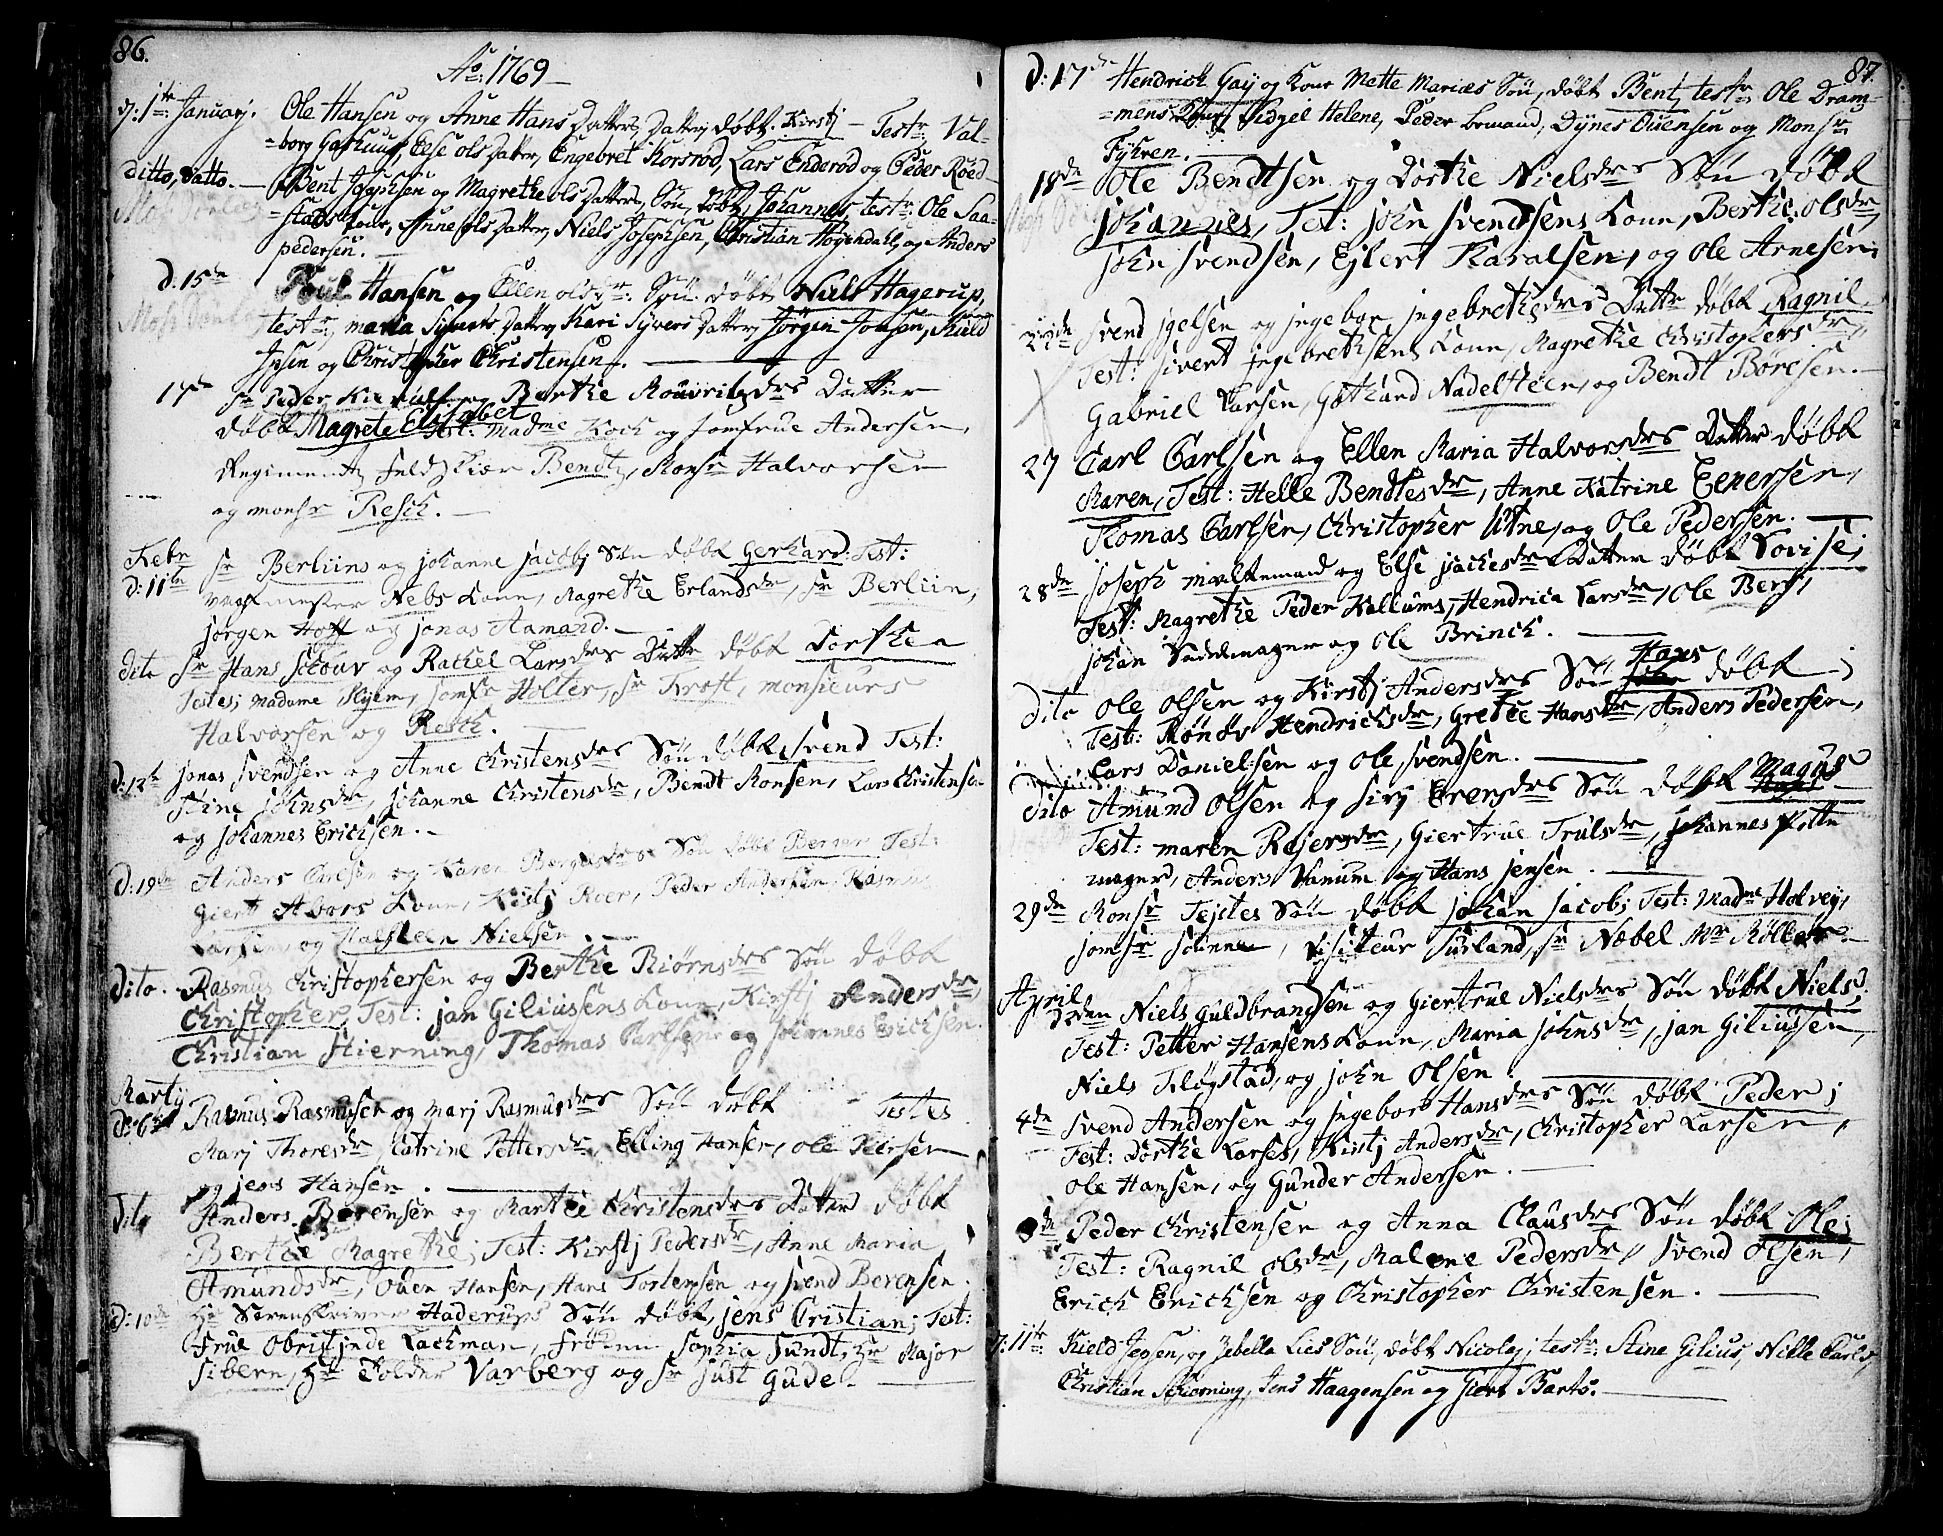 86.
Ao: 1769
d: 1te January. Ole Hansen og Anne Hans Datters Datter døbt Kirstj - Testr Val-
=borg Gashuus, Else ols Datter, Engebret Korsrød, Lars Enderød og Peder Røed
ditto, datto. Bent Josephsen og Magrethe ols Datters Søn, døbt Johannes, testr: Ole Saa-
=stads kone, Anne ols Datter, Niels Josephsen, Christian Høyendahl, og Anders
pedersen.
D. 15de Poul Hansen og Ellen ols Søn døbt Niels Hagerup,
testr, maria Syvers Datter, Kari Syvers Datter, Jørgen Jonsen, Kield
Jpsen og Christopher Christensen.
17de Sr Peder og Berthe drs Datter
døbt Magrete Elisabet Test: Madme Koch og Jomfrue Andersen,
Regiments Feldskiær Bendtz, Monsr Halvorsen
og monsr Resch.
Febr
D: 11te Sr Berliins og Johanne Jacobj Søn døbt Gerhard: Test:
mester Nebs Kone, Magrethe Erlandsdr, Sr Berliin,
Jørgen Hoff og Jonas Aamand.
dito Sr Hans Schouv og Rachel Larsdrs Dattr døbt Dorthea
Testes; Madame Hyem, Jomfr Holter, Sr Kroft, monsieurs
Halvorsen og Resch.
D: 12te Jonas Svendsen og Anne Christensdrs Søn døbt Svend Test:
Stine Johnsdr, Johanne Christensdr, Bendt Monsen, Lars Christensen
og Johannes Erichsen.
D: 19de Anders Carlsen og Karen drs Søn døbt Test:
Giert Abors Kone, Kistj Roer, Peder Andersen, Rasmus
Larsen, og Halsteen Nielsen.
Dito. Rasmus Christophersen og Berthe Biørnsdrs Søn døbt
Christopher, Test: Jan Giliusens Kone, Kirstj Andersdr,
Christian Hierning, Thomas Carlsen og Johannes Erichsen.
Martij
D: 6te Rasmus Rasmusen og Marj Rasmusdrs Søn døbt Testes
Marj Thoresdr, Katrine Pettersdr, Elling Hansen, Ole Peersen
og Jens Hansen.
Dito Anders Børensen og Marthe Kristensdrs Datter døbt
Berthe Magrethe; Test: Kirstj Pedersdr, Anne Maria
Amundsdr, Ouen Hansen, Hans Torstensen og Svend Berensen.
D: 10de Hr Sorenskriver Haderups Søn døbt, Jens Cristian; Test:
Frue Obristjnde Lachman, Frøken Sophia Sundt, Hr Major
Sibern, Hr Holder Varberg og Sr Just Gude.
87.
D: 17de Hendrich Gaij og kone Mette Maries Søn, døbt Bent, testr: Ole Dram-
=mens Kone, Sidgel Helene, Peder bomand, Dynes Ouensen og Monsr
Fyhren.
18de Ole Bendtsen og Dorthe Nielsdrs Søn døbt
Johannes, Test: John Svendsens Kone, Berthe olsdr,
John Svendsen, Ejlert Haralsen, og Ole Arnesen.
Svend Jgelsen og Jngebor Jngebrethsdrs Dattr døbt Ragnil
Test: Sivert Jngebrethsens Kone, Magrethe Christophersdr,
Gabriel Larsen, Gothard Nadelsteen, og Bendt Børesen.
27 Carl Carlsen og Ellen Maria Halvorsdrs Datter døbt
Maren, Test: Helle Bendtesdr, Anne Katrine Evensen,
Thomas Carlsen, Christopher Utne, og Ole Pedersen.
28de Joseph og Else Jachesdrs Datter døbt Lovise;
Test: Magrethe Peder Hallums, Hendrica Larsdr, Ole Berg,
Johan Sadelmager og Ole Brinch.
Dito Ole Olsen og Kirstj Andersdrs Søn Hans døbt;
Test: Rønøv Hendrichsdr, Grethe Hansdr, Anders Pedersen,
Lars Danielsen og Ole Svendsen.
Dito Amund Olsen og Sirj Evensdrs Søn døbt Magus
Test: maren Rejersdr, Giertrue Trulsdr, Johannes Potte
mager, Anders Vanum og Hans Jensen.
29de Monsr Tejstes Søn døbt Johan Jacob; Test: Madme Holvej,
Jomfr Schinne, Visiteur Surland, Sr Næbel Mr Møller.
Apryl
den Niels Guldbrandsen og Giertrue Nielsdrs Søn døbt Niels,
Test: Petter Hansens Kone, Maria Johnsdr, Jan Giliussen,
Niels Kløgstad, og John Olsen.
4de Svend Andersen og Jngebor Hansdrs Søn døbt Peder;
Test: Dorthe Larses, Kirstj Andersdr, Christopher Larsen,
Ole Hansen, og Gunder Andersen.
de Peder Christensen og Anna Clausdrs Søn døbt Ole;
Test: Ragnil olsdr, Malene Pedersdr, Svend Olsen,
Erich Erichsen og Christopher Christensen.
D: 11te Kield Jepsen, og Zebella Lies Søn, døbt Nicolaj; testr: Stine Gilius, Nille Carls,
Christian Schierning, Jens Haagensen og Giert Bartos.